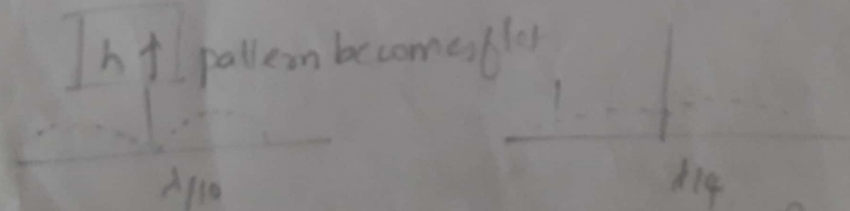 h ↑ pattern becomes flat
λ/10 λ/4